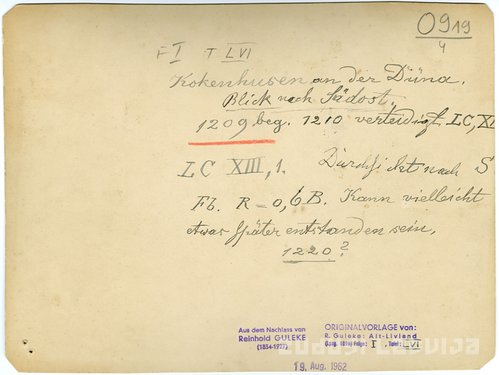 0919
4
F I T LVI
Kokenhusen an der Düna.
Blick nach Südost.
1209 beg. 1210 verteidigt LC, XI
LC XIII, 1. Durchsicht nach S
Fb. R = 0,6 B. Kann vielleicht
etwas später entstanden sein,
1220?
Aus dem Nachlass von
Reinhold GULEKE
(1834-1927)
ORIGINALVORLAGE von:
R. Guleke: Alt-Livland
(Lpzg. 1896) Folge: I, Tafel: LVI
19. Aug. 1962